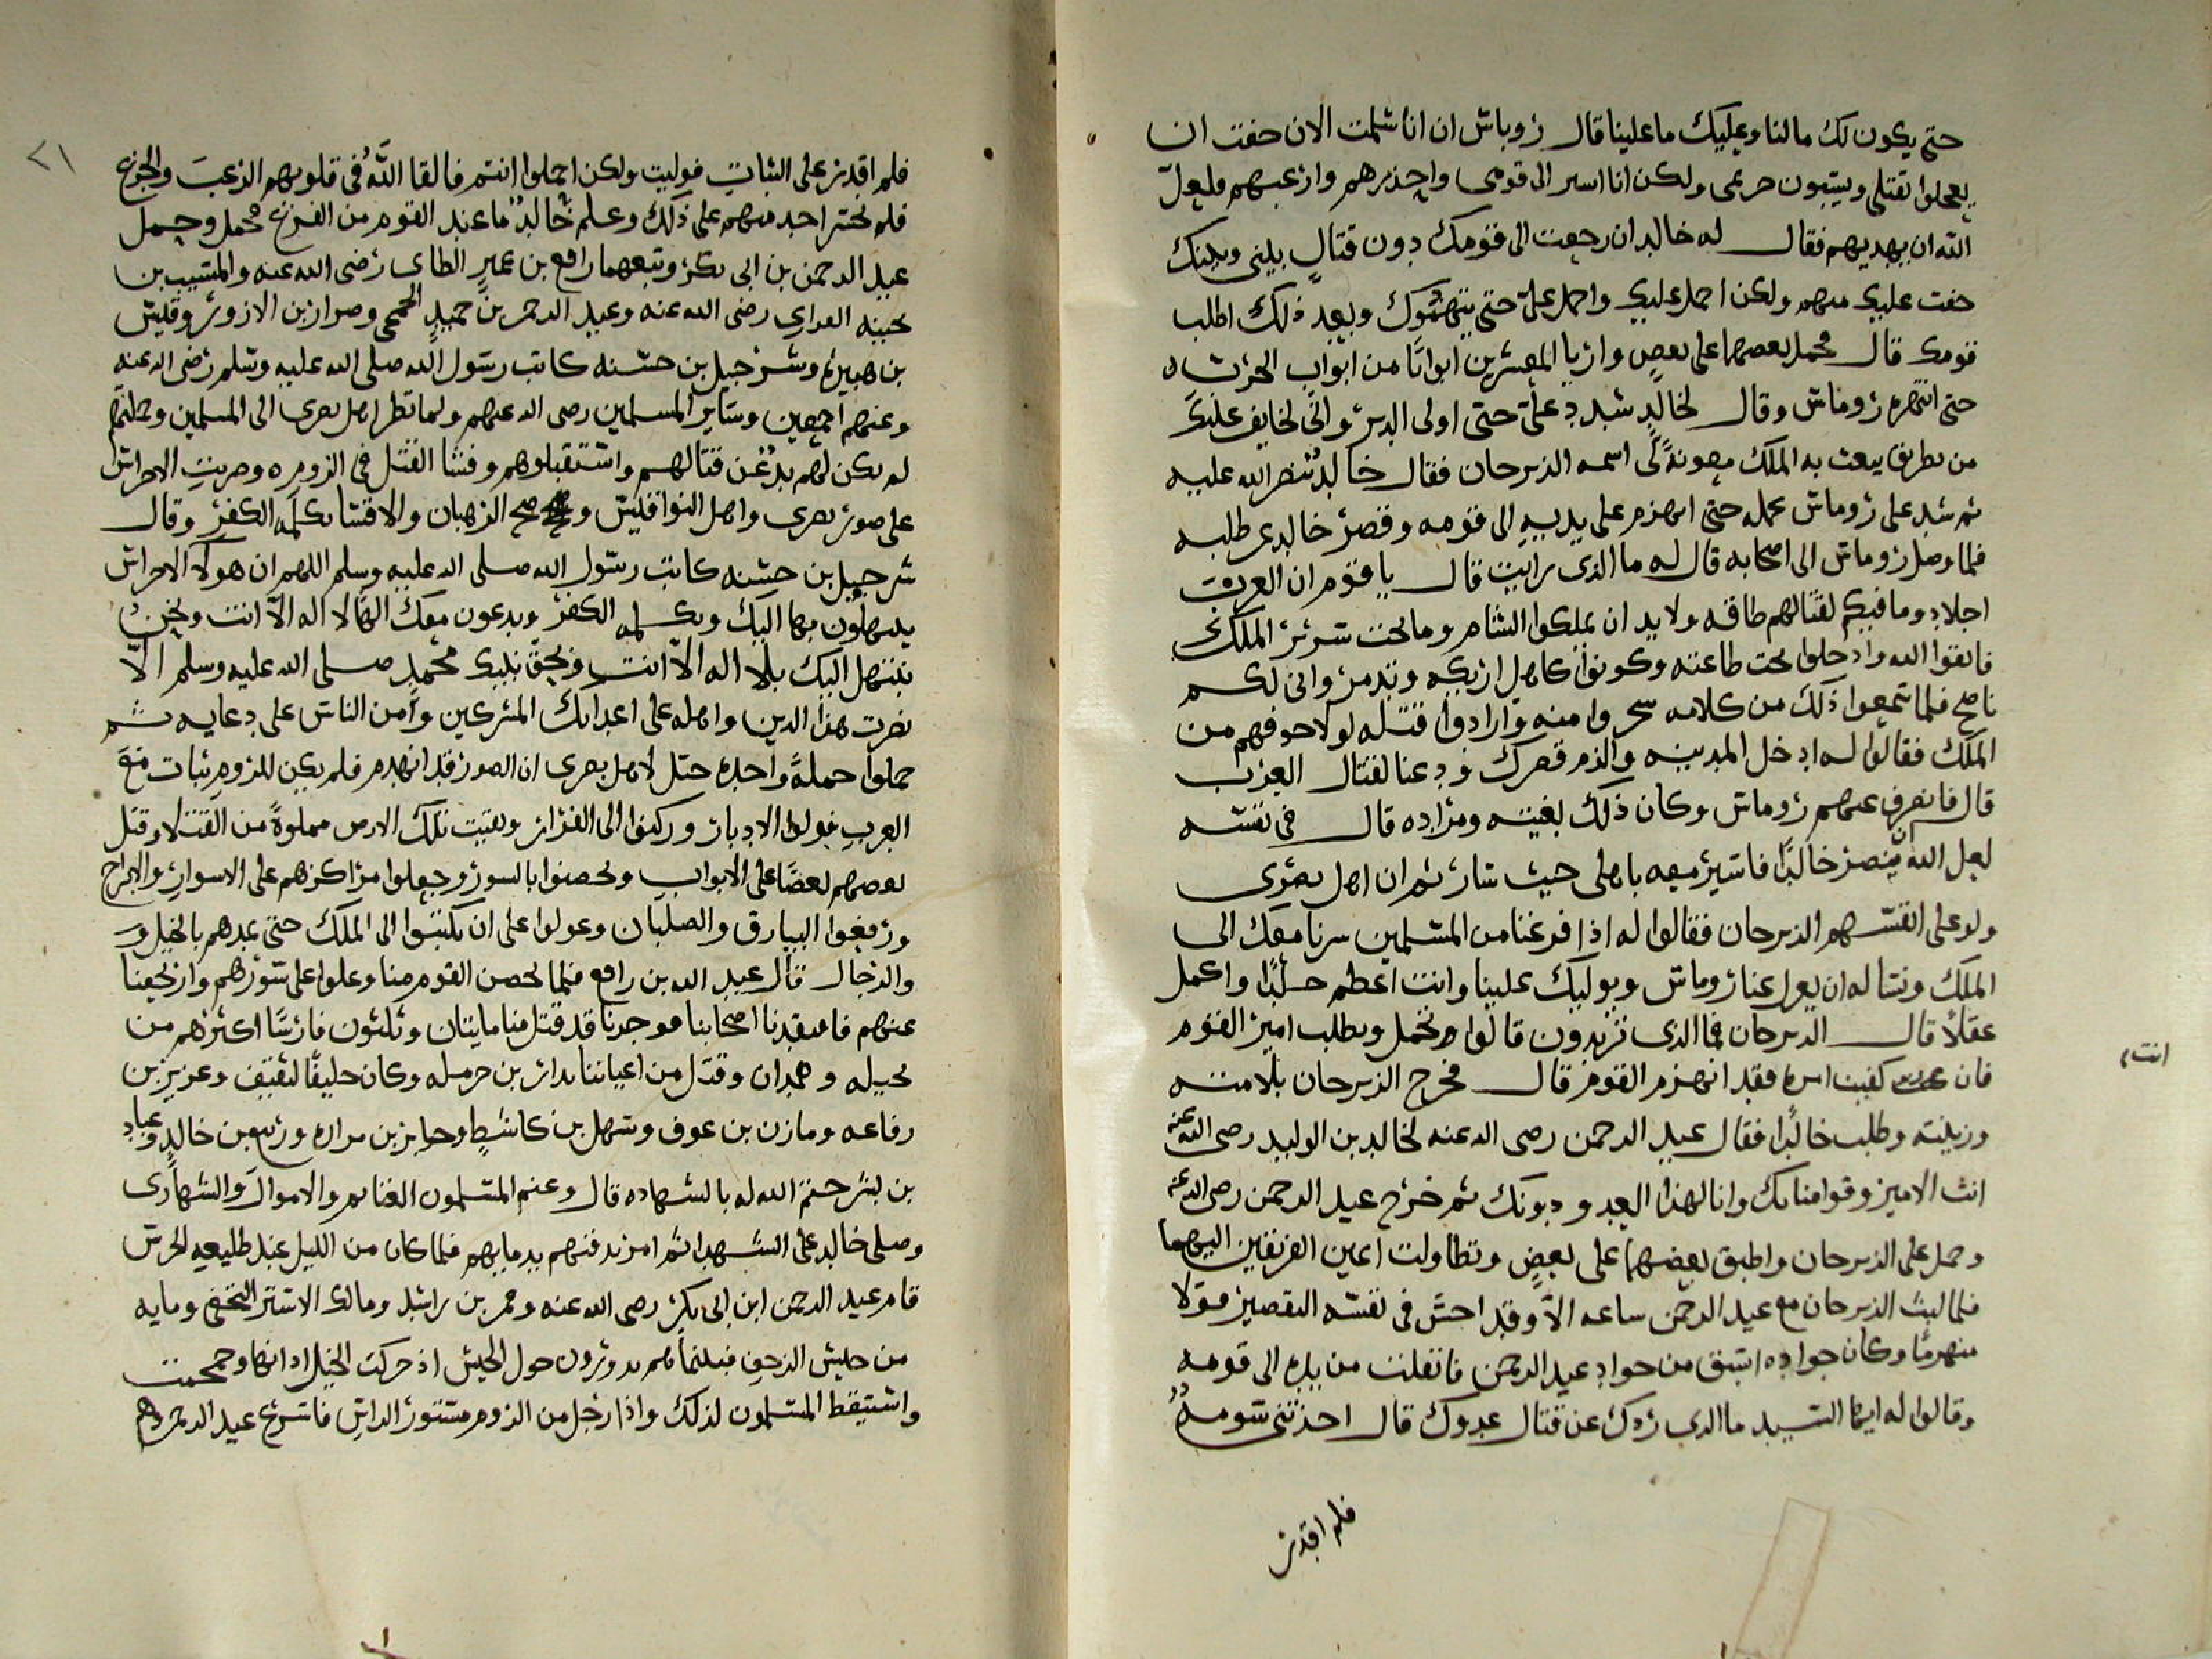 حتى يكون لك مالنا وعليك ما علينا قال روماس ان انا سلمت الان خفت ان
يعجلوا بقتلى ويسبون حريمى ولكن انا اسير الى قومى واحذرهم وارغبهم فلعل
الله ان يهديهم فقال له خالد ان رجعت الى قومك دون قتال بينى وبينك
خفت عليك منهم ولكن احمل عليك واحمل على حتى يتهموك وبعد ذلك اطلب
قومك قال فحمل بعضهما على بعض واريا المعسكرين ابوابا من ابواب الحرب
حتى انهزم روماس وقال لخالد شدد على حتى اولى الدبر وانى لخايف عليك
من بطريق يبعث به الملك معونة لى اسمه الدرجان فقال خالد ينصر الله عليه
ثم شد على روماس بحمله حتى انهزم على يديه الى قومه وقصر خالد عن طلبه
فلما وصل روماس الى اصحابه قال له ما الذى رايت قال يا قوم ان العرب
اجلاد وما فيكم لقتالهم طاقه ولا بد ان يملكوا الشام وما تحت سرير الملك
فاتقوا الله وادخلوا تحت طاعته وكونوا كاهل اركه وتدمر وانى لكم
ناصح فلما سمعوا ذلك من كلامه سخروا منه وارادوا قتله لولا خوفهم من
الملك فقالوا له ادخل المدينه والزم قصرك ودعنا لقتال العرب
قال فانصرف عنهم روماس وكان ذلك بغيته ومراده قال فى نفسه
لعل الله ان ينصر خالدا فاسير معه باهلى حيث سار ثم ان اهل بصرى
ولوا على انفسهم الدرجان فقالوا له اذا فرغنا من المسلمين سرنا معك الى
الملك ونساله ان يعزل عنا روماس ويوليك علينا وانت اعظم حسبا واكمل
عقلا قال الدرجان فما الذى تريدون قالوا تحمل وتطلب امير القوم
فان انت كفيت امره فقد انهزم القوم قال فخرج الدرجان بلامته
وزينته وطلب خالدا فقال عبد الرحمن رضى الله عنه لخالد بن الوليد رضى الله عنه
انت الامير وقوامنا بك وانا لهذا العدو دونك ثم خرج عبد الرحمن رضى الله عنه
وحمل على الدرجان واطبق بعضهما على بعض وتطاولت اعين الفريقين اليهما
فلما لبث الدرجان مع عبد الرحمن ساعه الا وقد احس فى نفسه التقصير فولا
منهزما وكان جواده اسبق من جواد عبد الرحمن فانفلت من يده الى قومه
وقالوا له ايها السيد ما الذى ردك عن قتال عدوك قال اخذتنى
فلم اقدر
٢١
فلم اقدر على الثبات فوليت ولكن احملوا انتم فالقا الله فى قلوبهم الرعب والجزع
فلم يجسر احد منهم على ذلك وعلم خالد ما عند القوم من الفزع فحمل وحمل
عبد الرحمن بن ابى بكر وتبعهما رافع بن عمير الطاى رضى الله عنه والمسيب بن
نجيبه الفزارى رضى الله عنه وعبد الرحمن بن حميد الجمحى وضرار بن الازور وقيس
بن هبيره وشرحبيل بن حسنه كاتب رسول الله صلى الله عليه وسلم رضى الله عنه
وعنهم اجمعين وساير المسلمين رضى الله عنهم ولما نظر اهل بصرى الى المسلمين وحملتهم
لم يكن لهم بد عن قتالهم واستقبلوهم وفشا القتل فى الروم وضربت الاجراس
على صور بصرى واهل النواقيس وضج الرهبان والاقسا بكلمه الكفر وقال
شرحبيل بن حسنه كاتب رسول الله صلى الله عليه وسلم اللهم ان هولا الارجاس
يبتهلون بها اليك وبكلمه الكفر ويدعون معك الها لا اله الا انت ونحن
نبتهل اليك بلا اله الا انت وبحق نبيك محمد صلى الله عليه وسلم الا
نصرت هذا الدين واهله على اعدايك المشركين وامن الناس على دعايه ثم
حملوا حملة واحده خيل لاهل بصرى ان الصور قد انهدم فلم يكن للروم ثبات مع
العرب فولوا الادبار وركنوا الى الفرار وبقيت تلك الارض مملوة من القتلا وقتل
بعضهم بعضا على الابواب وتحصنوا بالسور وجعلوا مراكزهم على الاسوار والابراج
ورفعوا البيارق والصلبان وعولوا على ان يكتبوا الى الملك حتى يمدهم بالخيل و
والرجال قال عبد الله بن رافع فلما تحصن القوم منا وعلوا على سورهم وارتجعنا
عنهم فافتقدنا اصحابنا فوجدنا قد قتل منا مايتان وثلثون فارسا اكثرهم من
بجيله وهمدان وقتل من اعياننا بدار بن حرمله وكان حليفا لثقيف وعزيز بن
رفاعه ومازن بن عوف وسهل بن كاشط وجابر بن مراره وربيع بن خالد وعباد
بن بشر ختم الله له بالشهاده قال وغنم المسلمون الغنايم والاموال والشهارى
وصلى خالد على الشهدا ثم امر بدفنهم بدمايهم فلما كان من الليل عند طليعه الحرس
قام عبد الرحمن ابن ابى بكر رضى الله عنه ومعمر بن راشد ومالك الاشتر النخعى ومايه
من جيش الزحف فبينما هم يدورون حول الجيش اذ حركت الخيل اذانها وحمحمت
واستيقظ المسلمون لذلك واذا رجل من الروم مستور الراس فاسرع عبد الرحمن